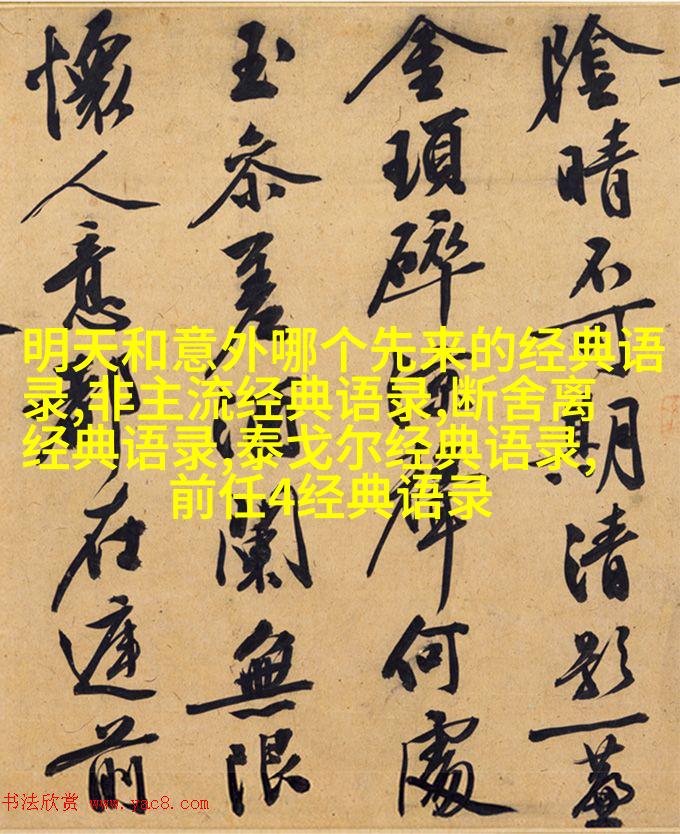 陰晴不可期清影一
金瑣碎聲何處
玉參差闌無限
懷人意都在前
明天和意外哪个先来的经典语
录,非主流经典语录,断舍离
经典语录,泰戈尔经典语录,
前任4经典语录
书法欣赏 www.yac8.com